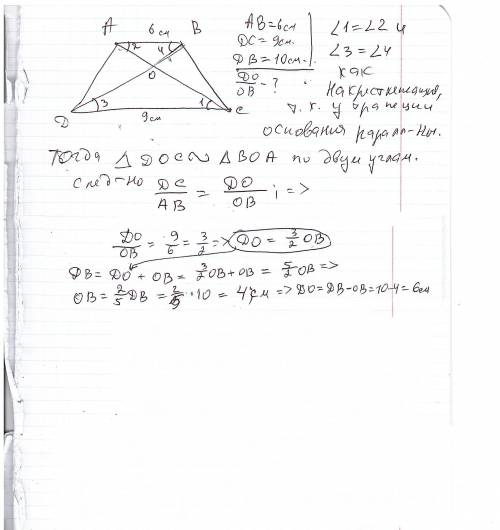 A 6 см B
2 4
O
3 1
D 9см C
AB = 6см
DC = 9см.
DB = 10см.
DO/OB - ?
∠1 = ∠2 и
∠3 = ∠4
как
накрестлежащие,
т. к. у трапеции
основания паралл-ны.
Тогда △ DOC ∾ △ BOA по двум углам.
след-но DC/AB = DO/OB ; =>
DO/OB = 9/6 = 3/2 => DO = 3/2 OB
DB = DO + OB = 3/2 OB + OB = 5/2 OB =>
OB = 2/5 DB = 2/5 · 10 = 4 см => DO = DB - OB = 10-4 = 6см